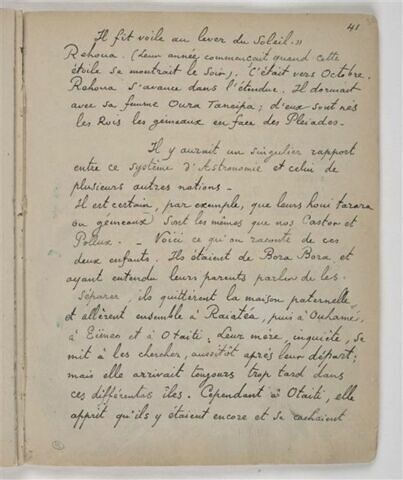 41
Il fit voile au lever du Soleil.»
Rehoua. (Leur année commençait quand cette
étoile se montrait le Soir). C'était vers Octobre.
Rehoua s'avance dans l'étendue. Il dormait
avec sa femme Oura Taneipa; d'eux sont nés
les Rois les gémeaux en face des Pleiades_
Il y aurait un singulier rapport
entre ce système d'Astronomie et celui de
plusieurs autres nations_
Il est certain, par exemple, que leurs houi tarara
ou gémeaux) sont les mêmes que nos Castor et
Pollux. _ Voici ce qu'on raconte de ces
deux enfants. Ils étaient de Bora Bora et
ayant entendu leurs parents parler de les
séparer, ils quittèrent la maison paternelle
et allèrent ensemble à Raiatéa, puis à Ouhamé,
à Eïmeo et à Otaïti. Leur mère, inquiète, se
mit à les chercher, aussitôt après leur départ;
mais elle arrivait toujours trop tard dans
ces différentes îles. Cependant à Otaïti, elle
apprit qu'ils y étaient encore et se cachaient